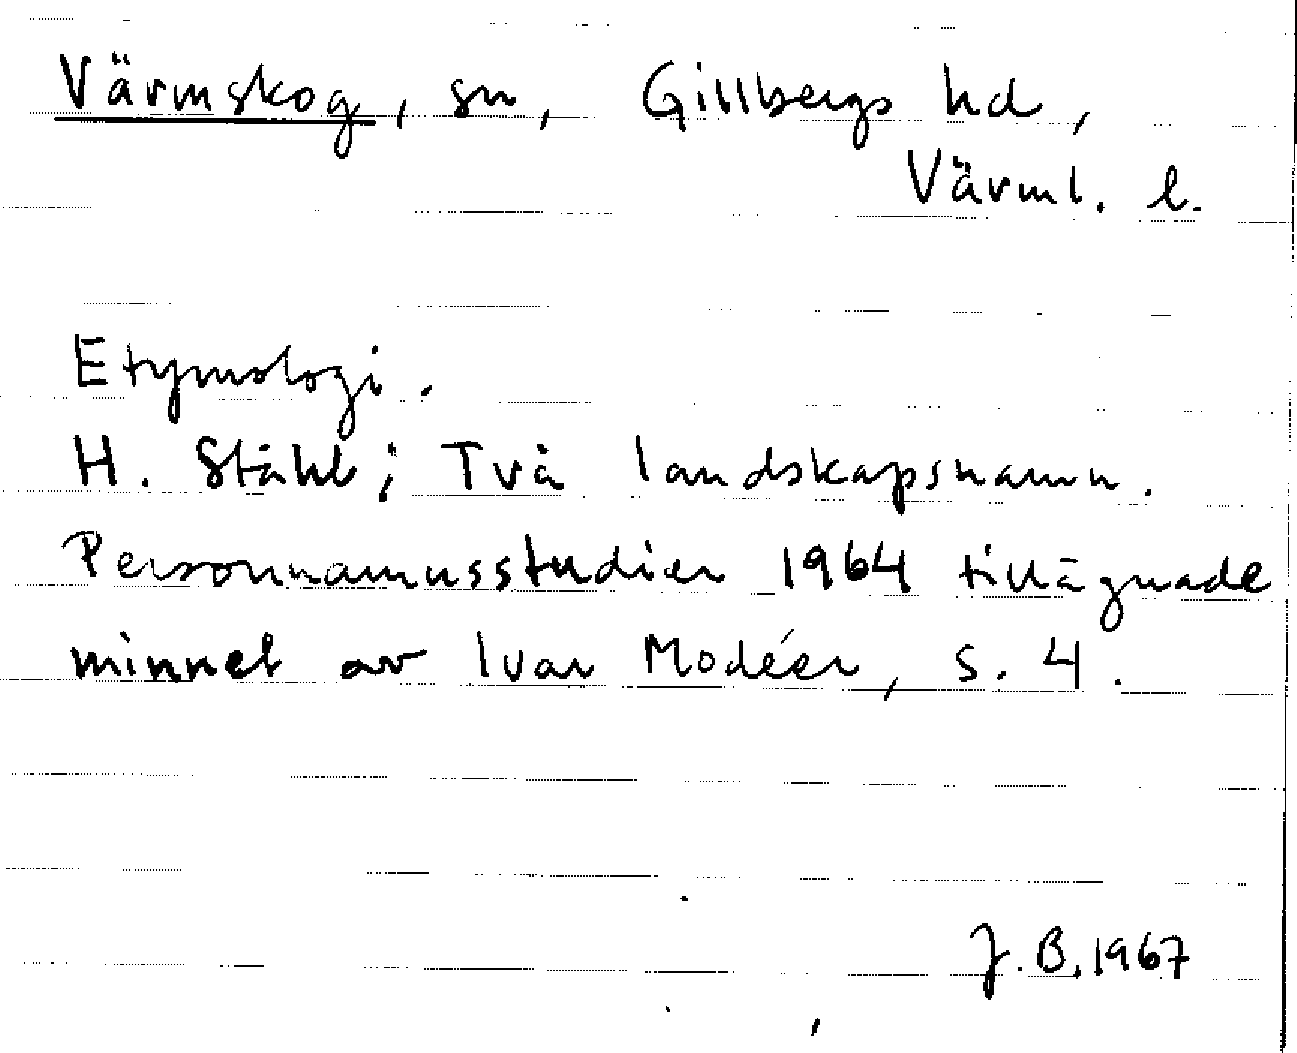 Värmskog, sn, Gillbergs hd,
Värml. l.
Etymologi.
H. Ståhl; Två landskapsnamn.
Personnamnsstudier 1964 tillägnade
minnet av Ivar Modéer, s. 4.
J. B. 1967